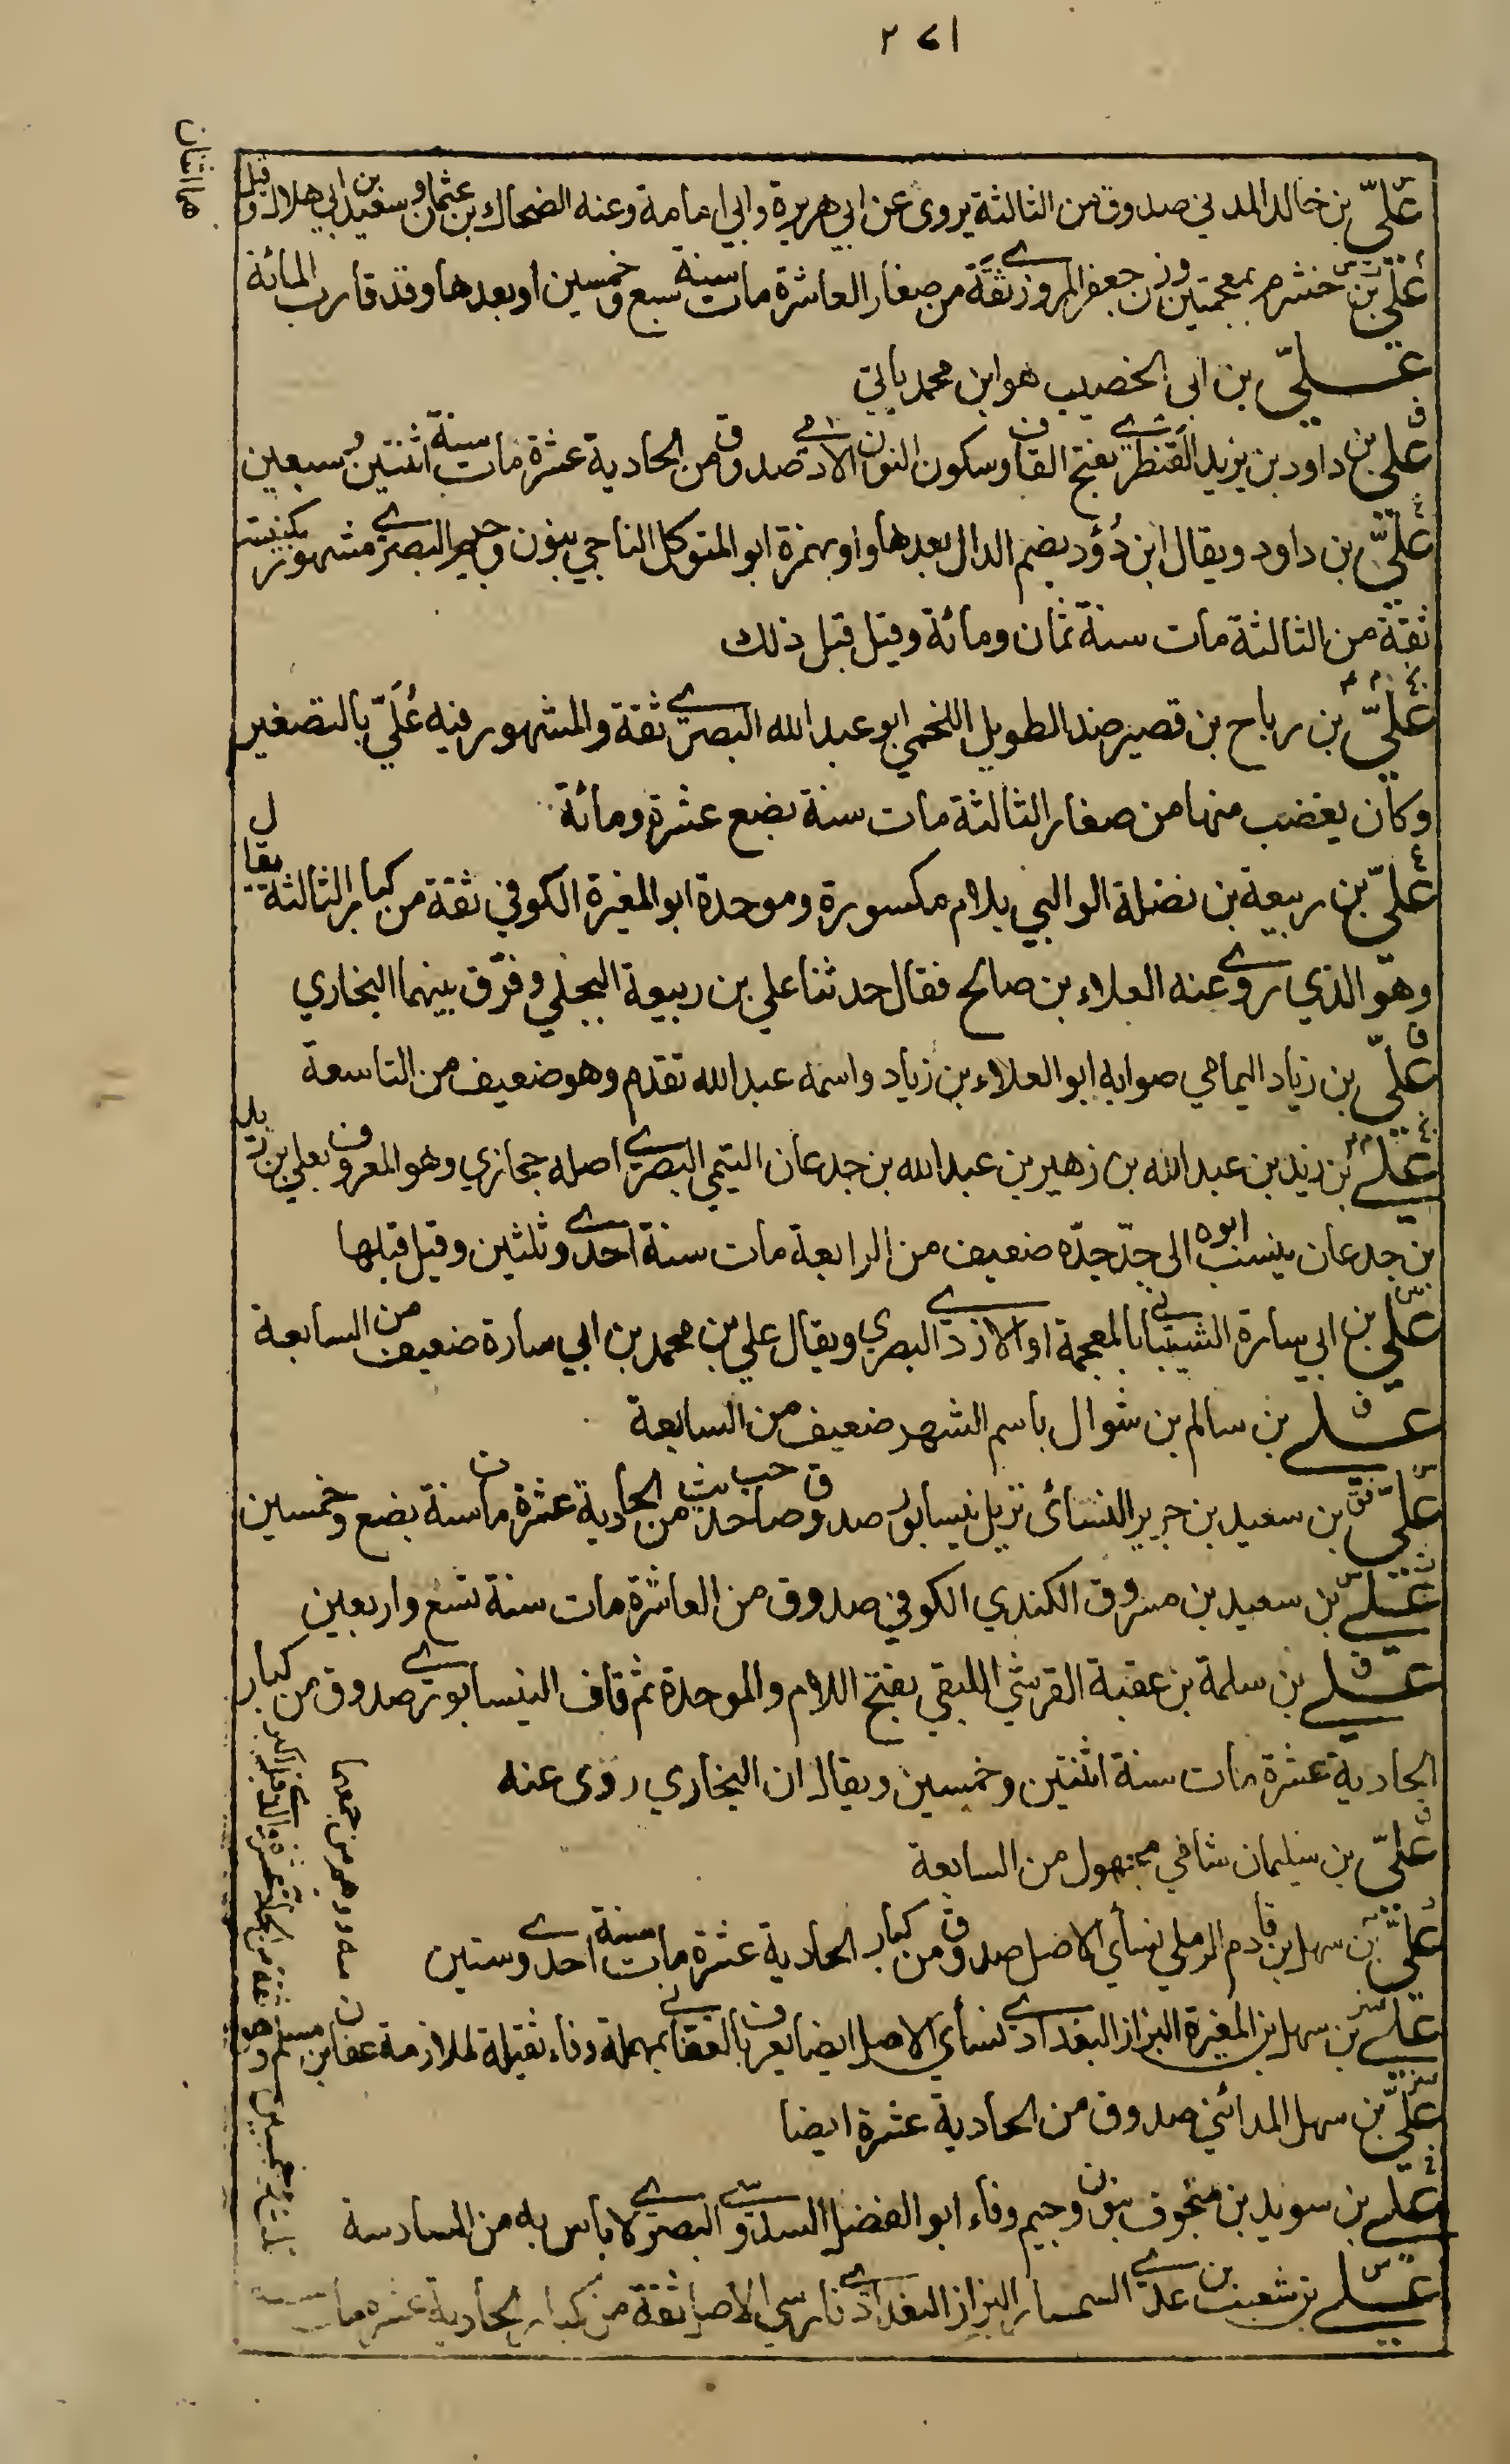 ٢٧١
عليّ بن خالد المدني صدوق من الثالثة يروى عن ابي هريرة وابي امامة وعنه الضحاك بن عثمان وسعيد بن ابي هلال وقيل
هما اثنان
عليّ بن خشرم بمعجمتين وزن جعفر المروزي ثقة من صغار العاشرة مات سنة سبع وخمسين او بعدها وقد قارب المائة
عليّ بن ابى الخصيب هو ابن محمد يأتي
عليّ بن داود بن يزيد القنطري بفتح القاف وسكون النون الادمي صدوق من الحادية عشرة مات سنة اثنتين وسبعين
عليّ بن داود ويقال ابن دُؤد بضم الدال بعدها واو بهمزة ابو المتوكل الناجي بنون وجيم البصري مشهور بكنيته
ثقة من الثالثة مات سنة ثمان ومائة وقيل قبل ذلك
عليّ بن رباح بن قصير ضد الطويل اللخمي ابو عبد الله البصري ثقة والمشهور فيه عُلَيّ بالتصغير
وكان يغضب منها من صغار الثالثة مات سنة بضع عشرة ومائة
عليّ بن ربيعة بن نضلة الوالبي بلام مكسورة وموحدة ابو المغيرة الكوفي ثقة من كبار الثالثة يقال
وهو الذي روى عنه العلاء بن صالح فقال حدثنا علي بن ربيعة البجلي وفرّق بينهما البخاري
عليّ بن زياد اليمامي صوابه ابو العلاء بن زياد واسمه عبد الله تقدم وهو ضعيف من التاسعة
علي بن زيد بن عبد الله بن زهير بن عبد الله بن جدعان التيمي البصري اصله حجازي وهو المعروف بعلي بن زيد
بن جدعان ينسب ابوه الى جدّ جدّه ضعيف من الرابعة مات سنة احدى وثلثين وقيل قبلها
عليّ بن ابي سارة الشيباني بالمعجمة او الازدي البصري ويقال علي بن محمد بن ابي سارة ضعيف من السابعة
علي بن سالم بن شوال باسم الشهر ضعيف من السابعة
عليّ بن سعيد بن جرير النسائى نزيل نيسابور صدوق صاحب حديث من الحادية عشرة مات سنة بضع وخمسين
علي بن سعيد بن مسروق الكندي الكوفي صدوق من العاشرة مات سنة تسع واربعين
علي بن سلمة بن عقبة القرشي اللبقي بفتح اللام والموحدة ثم قاف النيسابوري صدوق من كبار
الحادية عشرة مات سنة اثنتين وخمسين ويقال ان البخاري روى عنه
عليّ بن سليمان شامي مجهول من السابعة
عليّ بن سهل بن قادم الرملي نسأي الاصل صدوق من كبار الحادية عشرة مات سنة احدى وستين
علي بن سهل بن المغيرة البزاز البغدادي نسأي الاصل ايضا يعرف بالعفاني بمهملة وفاء ثقيلة لملازمة عفان بن مسلم وهو
ثقة من الحادية عشرة
عليّ بن سهل المدائني صدوق من الحادية عشرة ايضا
علي بن سويد بن منجوف بنون وجيم وفاء ابو الفضل السدوسي البصري لا بأس به من السادسة
علي بن شعيب بن عدي السمسار البزاز البغدادي فارسي الاصل ثقة من كبار الحادية عشرة مات